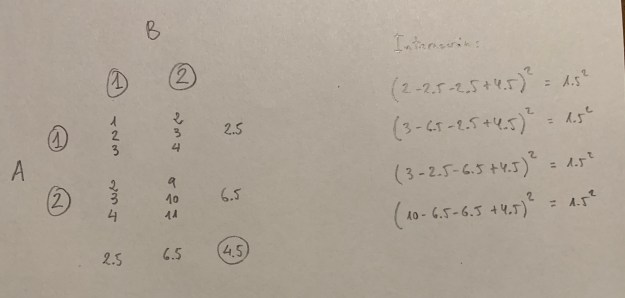 B
1 2
1 2
2 3 2.5
1
3 4
A
2 9
3 10 6.5
2
4 11
2.5 6.5 4.5
(2-2.5-2.5+4.5)² = 1.5²
(3-6.5-2.5+4.5)² = 1.5²
(3-2.5-6.5+4.5)² = 1.5²
(10-6.5-6.5+4.5)² = 1.5²